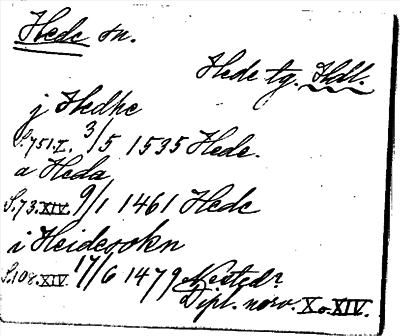 Hede sn.
Hede tg. Hdl.
j Hedhe
S.751.I. 3/5 1535 Hede.
a Heda
S.73.XIV. 9/1 1461 Hede
i Heidesokn
S.108.XIV 17/6 1479 Avskr.
Dipl. norv. X o. XIV.